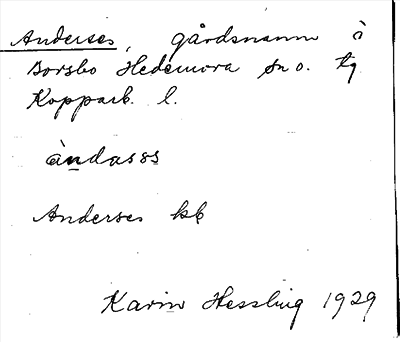 Anderses, gårdsnamn i
Borsbo Hedemora sn o. tg
Kopparb. l.
àndasss
Anderses kb
Karin Hessling 1929